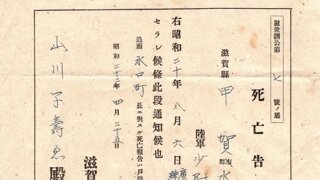 滋世調公第七號ノ屬
死亡告
滋賀縣甲賀郡水
陸軍少尉
右昭和二十年八月六日
セラレ候條此段通知候也
追而水口町長ニ對スル死亡報告ハ
昭和二十二年四月二十五日
滋賀
山川子壽恵殿